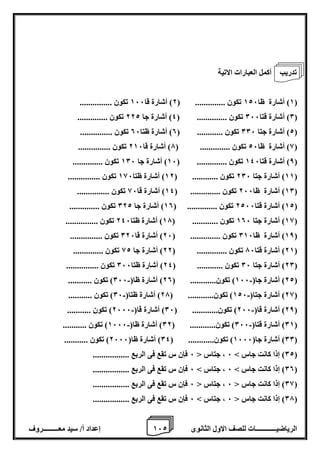 تدريب أكمل العبارات الآتية
(١) أشارة ظا١٥٠ تكون ..............
(٢) أشارة قا١٠٠ تكون ...............
(٣) أشارة قتا٣٠٠ تكون ..............
(٤) أشارة جا ٢٢٥ تكون ..............
(٥) أشارة جتا ٣٣٠ تكون ............
(٦) أشارة ظتا٦٠ تكون ...............
(٧) أشارة ظا٥٠ تكون ..............
(٨) أشارة قا٢١٠ تكون ...............
(٩) أشارة قتا١٤٠ تكون ..............
(١٠) أشارة جا ١٣٠ تكون ..............
(١١) أشارة جتا ٢٣٠ تكون ............
(١٢) أشارة ظتا١٧٠ تكون ...............
(١٣) أشارة ظا٢٠٠ تكون ..............
(١٤) أشارة قا٧٠ تكون ...............
(١٥) أشارة قتا٢٥٠٠ تكون ..............
(١٦) أشارة جا ٣٢٥ تكون ..............
(١٧) أشارة جتا ١٦٠ تكون ............
(١٨) أشارة ظتا٢٤٠ تكون ...............
(١٩) أشارة ظا٣١٠ تكون ..............
(٢٠) أشارة قا٣٢٠ تكون ...............
(٢١) أشارة قتا٨٠ تكون ..............
(٢٢) أشارة جا ٧٥ تكون ..............
(٢٣) أشارة جتا ٣٠ تكون ............
(٢٤) أشارة ظتا٣٠٠ تكون ...............
(٢٥) أشارة جا(-١٠٠) تكون............
(٢٦) أشارة ظا(-٣٠٠) تكون ...........
(٢٧) أشارة جتا(-١٥٠) تكون............
(٢٨) أشارة ظتا(-٣٠) تكون ...........
(٢٩) أشارة قا(-٢٠٠) تكون............
(٣٠) أشارة قا(-٢٠٠٠) تكون ...........
(٣١) أشارة قتا(-٣٠٠) تكون............
(٣٢) أشارة ظا(-١٠٠٠) تكون ...........
(٣٣) أشارة جا(١٠٠٠) تكون............
(٣٤) أشارة ظا(٢٠٠٠) تكون ...........
(٣٥) إذا كانت جاس > ٠ ، جتاس < ٠ فإن س تقع فى الربع .................
(٣٦) إذا كانت جاس > ٠ ، جتاس > ٠ فإن س تقع فى الربع .................
(٣٧) إذا كانت جاس < ٠ ، جتاس < ٠ فإن س تقع فى الربع .................
(٣٨) إذا كانت جاس < ٠ ، جتاس > ٠ فإن س تقع فى الربع .................
الرياضيـــــــات للصف الاول الثانوى ١٠٥ إعداد أ/ سيد معـــــــروف